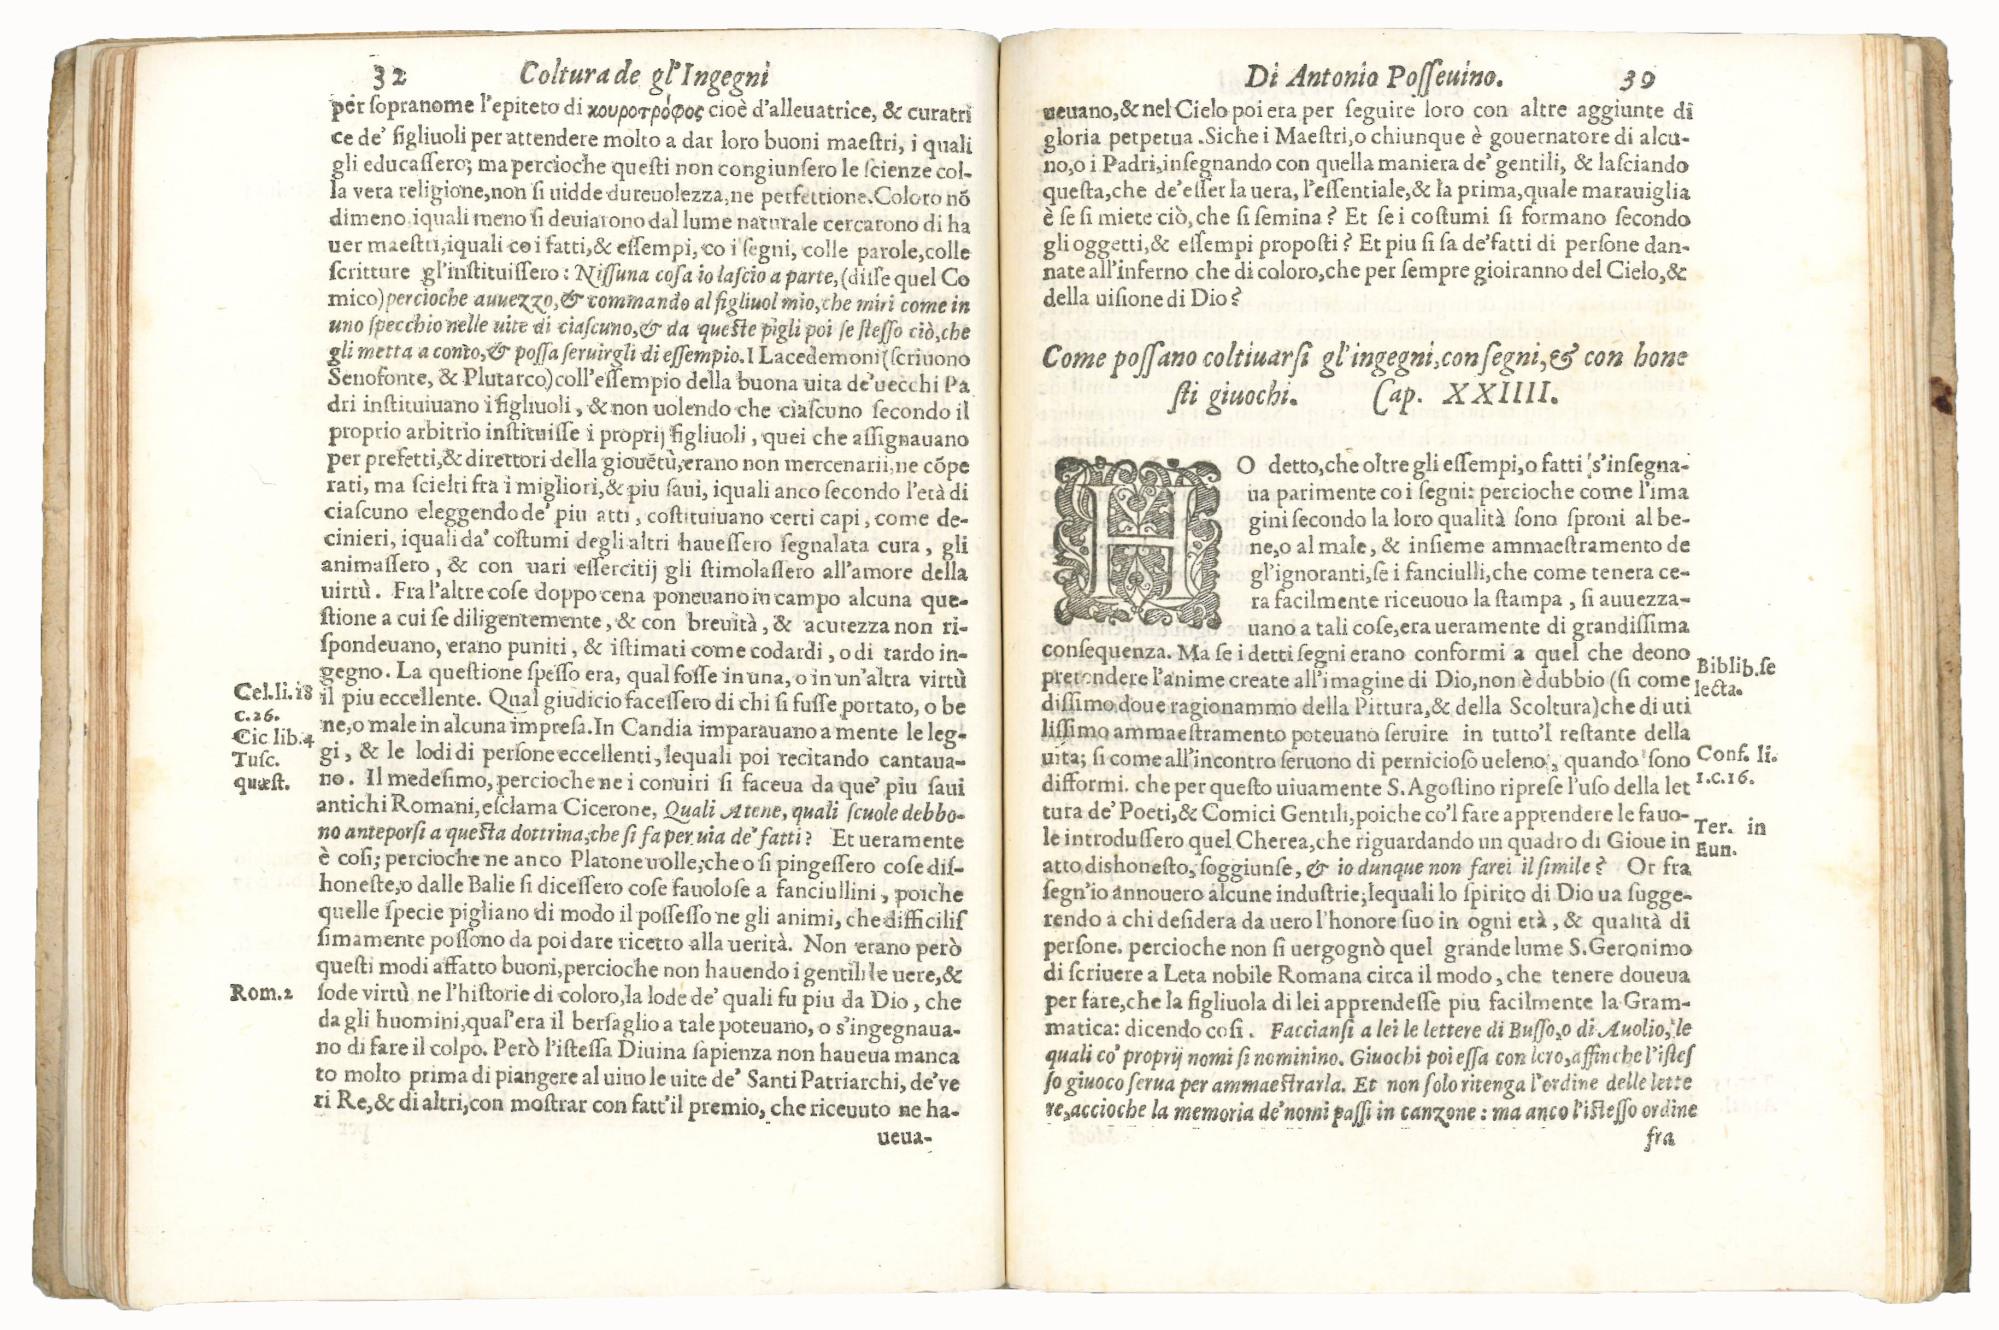 32 Coltura de gl'Ingegni
per sopranome l'epiteto di κουροτρόφος cioè d'alleuatrice, & curatri
ce de' figliuoli per attendere molto a dar loro buoni maestri, i quali
gli educassero; ma percioche questi non congiunsero le scienze col-
la vera religione, non si uidde dureuolezza, ne perfettione. Coloro nõ
dimeno iquali meno si deuiarono dal lume naturale cercarono di ha
uer maestri, iquali co i fatti, & essempi, co i segni, colle parole, colle
scritture gl'instituissero: Nissuna cosa io lascio a parte, (disse quel Co
mico) percioche auuezzo, & commando al figliuol mio, che miri come in
uno specchio nelle uite di ciascuno, & da queste pigli poi se stesso ciò, che
gli metta a conto, & possa seruirgli di essempio. I Lacedemoni (scriuono
Senofonte, & Plutarco) coll'essempio della buona uita de' uecchi Pa
dri instituiuano i figliuoli, & non uolendo che ciascuno secondo il
proprio arbitrio instituisse i proprij figliuoli, quei che assignauano
per prefetti, & direttori della giouẽtù, erano non mercenarii, ne cõpe
rati, ma scielti fra i migliori, & piu saui, iquali anco secondo l'età di
ciascuno eleggendo de' piu atti, costituiuano certi capi, come de-
cinieri, iquali da' costumi degli altri hauessero segnalata cura, gli
animassero, & con uari essercitij gli stimolassero all'amore della
uirtù. Fra l'altre cose doppo cena poneuano in campo alcuna que-
stione a cui se diligentemente, & con breuità, & acutezza non ri-
spondeuano, erano puniti, & istimati come codardi, o di tardo in-
gegno. La questione spesso era, qual fosse in una, o in un'altra virtù
il piu eccellente. Qual giudicio facessero di chi si fusse portato, o be
ne, o male in alcuna impresa. In Candia imparauano a mente le leg-
gi, & le lodi di persone eccellenti, lequali poi recitando cantaua-
no. Il medesimo, percioche ne i conuiri si faceua da que' piu saui
antichi Romani, esclama Cicerone, Quali Atene, quali scuole debbo-
no anteporsi a questa dottrina, che si fa per uia de' fatti? Et ueramente
è cosi; percioche ne anco Platone uolle, che o si pingessero cose dis-
honeste, o dalle Balie si dicessero cose fauolose a fanciullini, poiche
quelle specie pigliano di modo il possesso ne gli animi, che difficilis
simamente possono da poi dare ricetto alla uerità. Non erano però
questi modi affatto buoni, percioche non hauendo i gentili le uere, &
sode virtù ne l'historie di coloro, la lode de' quali fu piu da Dio, che
da gli huomini, qual'era il bersaglio a tale poteuano, o s'ingegnaua-
no di fare il colpo. Però l'istessa Diuina sapienza non haueua manca
to molto prima di piangere al uiuo le uite de' Santi Patriarchi, de' ve
ri Re, & di altri, con mostrar con fatt'il premio, che riceuuto ne ha-
ueua-
Cel.li.18
c.26.
Cic lib.4
Tusc.
quæst.
Rom.2
Di Antonio Posseuino. 39
ueuano, & nel Cielo poi era per seguire loro con altre aggiunte di
gloria petpetua. Siche i Maestri, o chiunque è gouernatore di alcu-
no, o i Padri, insegnando con quella maniera de' gentili, & lasciando
questa, che de' esser la uera, l'essentiale, & la prima, quale marauiglia
è se si miete ciò, che si semina? Et se i costumi si formano secondo
gli oggetti, & essempi proposti? Et piu si sa de' fatti di persone dan-
nate all'inferno che di coloro, che per sempre gioiranno del Cielo, &
della uisione di Dio?
Come possano coltiuarsi gl'ingegni, con segni, & con hone
sti giuochi. Cap. XXIIII.
HO detto, che oltre gli essempi, o fatti s'insegna-
ua parimente co i segni: percioche come l'ima
gini secondo la loro qualità sono sproni al be-
ne, o al male, & insieme ammaestramento de
gl'ignoranti, se i fanciulli, che come tenera ce-
ra facilmente riceuouo la stampa, si auuezza-
uano a tali cose, era ueramente di grandissima
consequenza. Ma se i detti segni erano conformi a quel che deono
pretendere l'anime create all'imagine di Dio, non è dubbio (si come
dissimo doue ragionammo della Pittura, & della Scoltura) che di uti
lissimo ammaestramento poteuano seruire in tutto'l restante della
uita; si come all'incontro seruono di pernicioso ueleno, quando sono
difformi. che per questo uiuamente S. Agostino riprese l'uso della let
tura de' Poeti, & Comici Gentili, poiche co'l fare apprendere le fauo-
le introdussero quel Cherea, che riguardando un quadro di Gioue in
atto dishonesto, soggiunse, & io dunque non farei il simile? Or fra
segn'io annouero alcune industrie, lequali lo spirito di Dio ua sugge-
rendo a chi desidera da uero l'honore suo in ogni età, & qualità di
persone. percioche non si uergognò quel grande lume S. Geronimo
di scriuere a Leta nobile Romana circa il modo, che tenere doueua
per fare, che la figliuola di lei apprendesse piu facilmente la Gram-
matica: dicendo cosi. Facciansi a lei le lettere di Busso, o di Auolio, le
quali co' proprij nomi si nominino. Giuochi poi essa con loro, affinche l'istes
so giuoco serua per ammaestrarla. Et non solo ritenga l'ordine delle lette
re, accioche la memoria de' nomi passi in canzone: ma anco l'istesso ordine
fra
Biblib.se
lecta.
Conf. li.
1.c.16.
Ter. in
Eun.